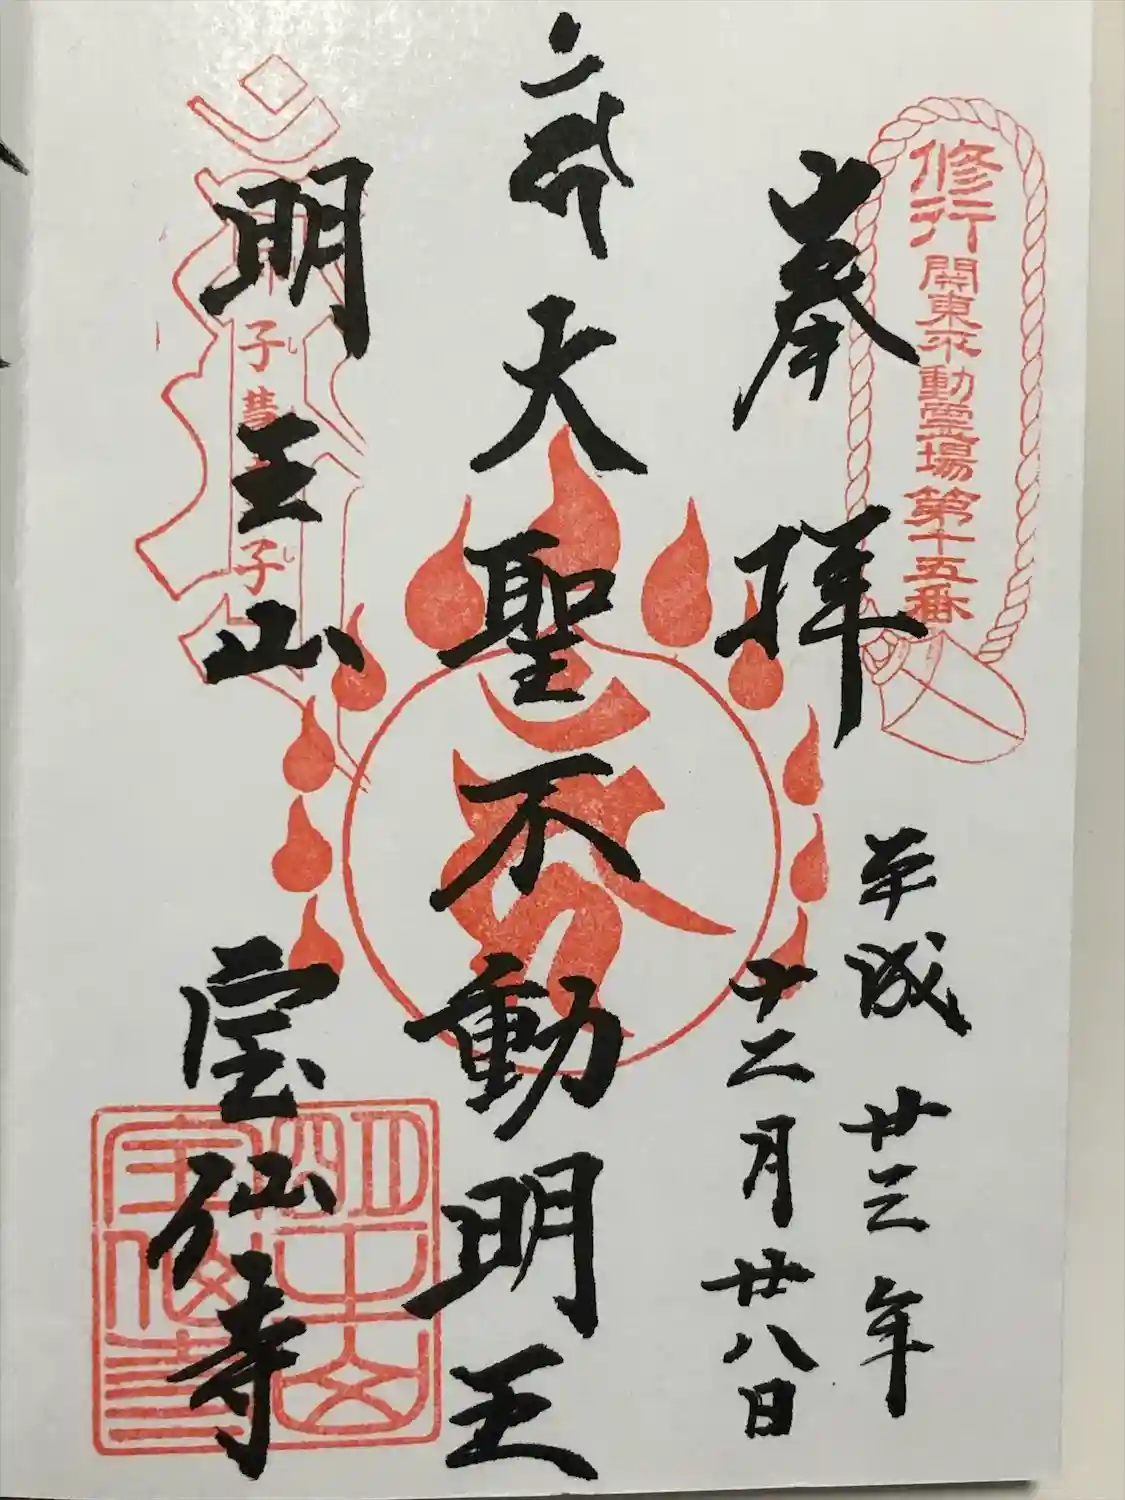 修行 関東不動霊場第十五番
奉拝
平成廿三年
十二月廿八日
大聖不動明王
明王山
宝仙寺
子
子
明王山
宝仙寺